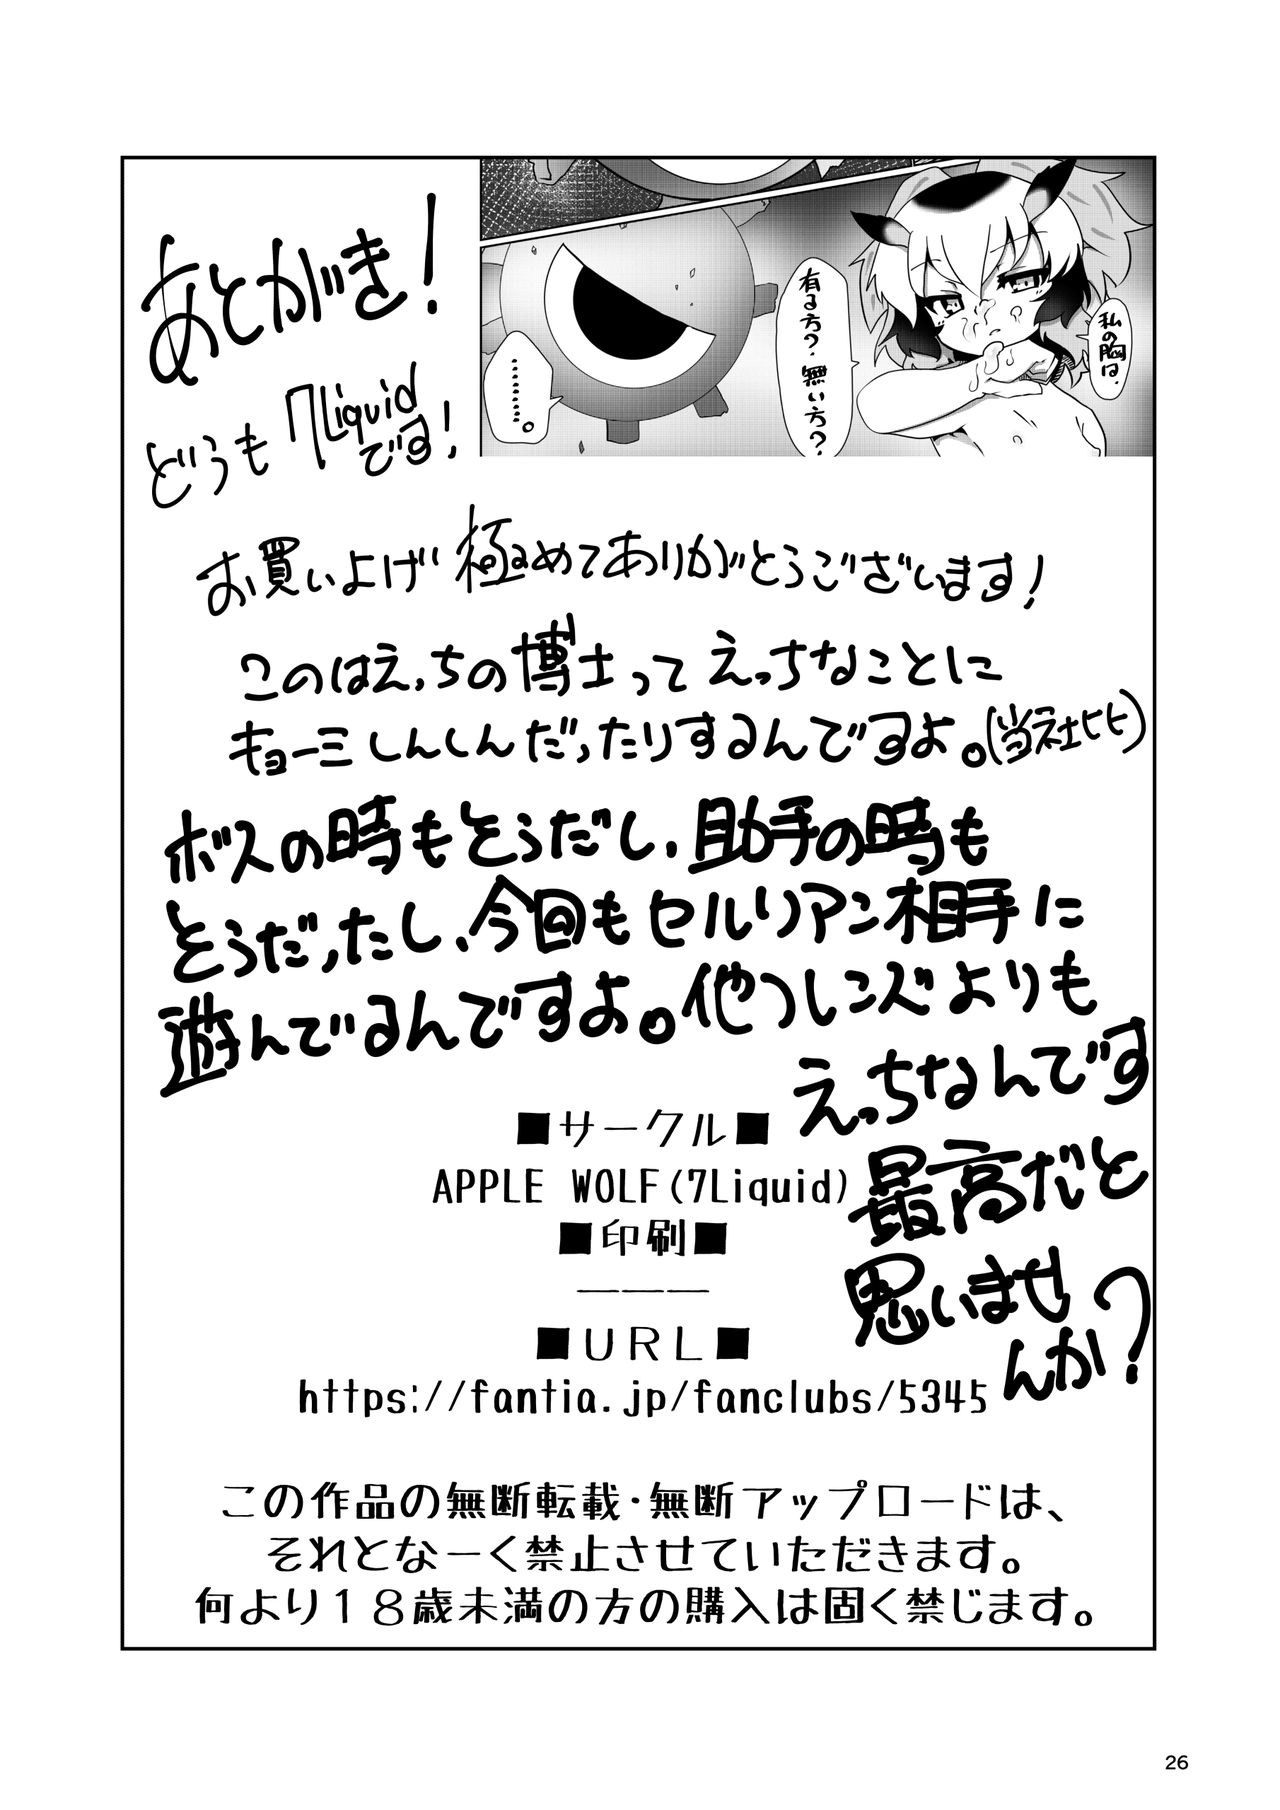 私の胸は、
有る方?無い方?
………。
あとがき!
どうも 7Liquid
です!
お買いよげ 極めてありがとうございます!
このはえっちの博士って えっちなことに
キョーミしんしんだったりするんですよ。(当社ヒヒ)
ボスの時もとうだし、助手の時も
とうだったし、今回もセルリアン相手に
遊んでるんですよ。他フレンズよりも
えっちなんです
最高だと
思いませ
んか?
■サークル■
APPLE WOLF(7Liquid)
■印刷■
ーーー
■URL■
https://fantia.jp/fanclubs/5345
この作品の無断転載・無断アップロードは、
それとなーく禁止させていただきます。
何より18歳未満の方の購入は固く禁じます。
26